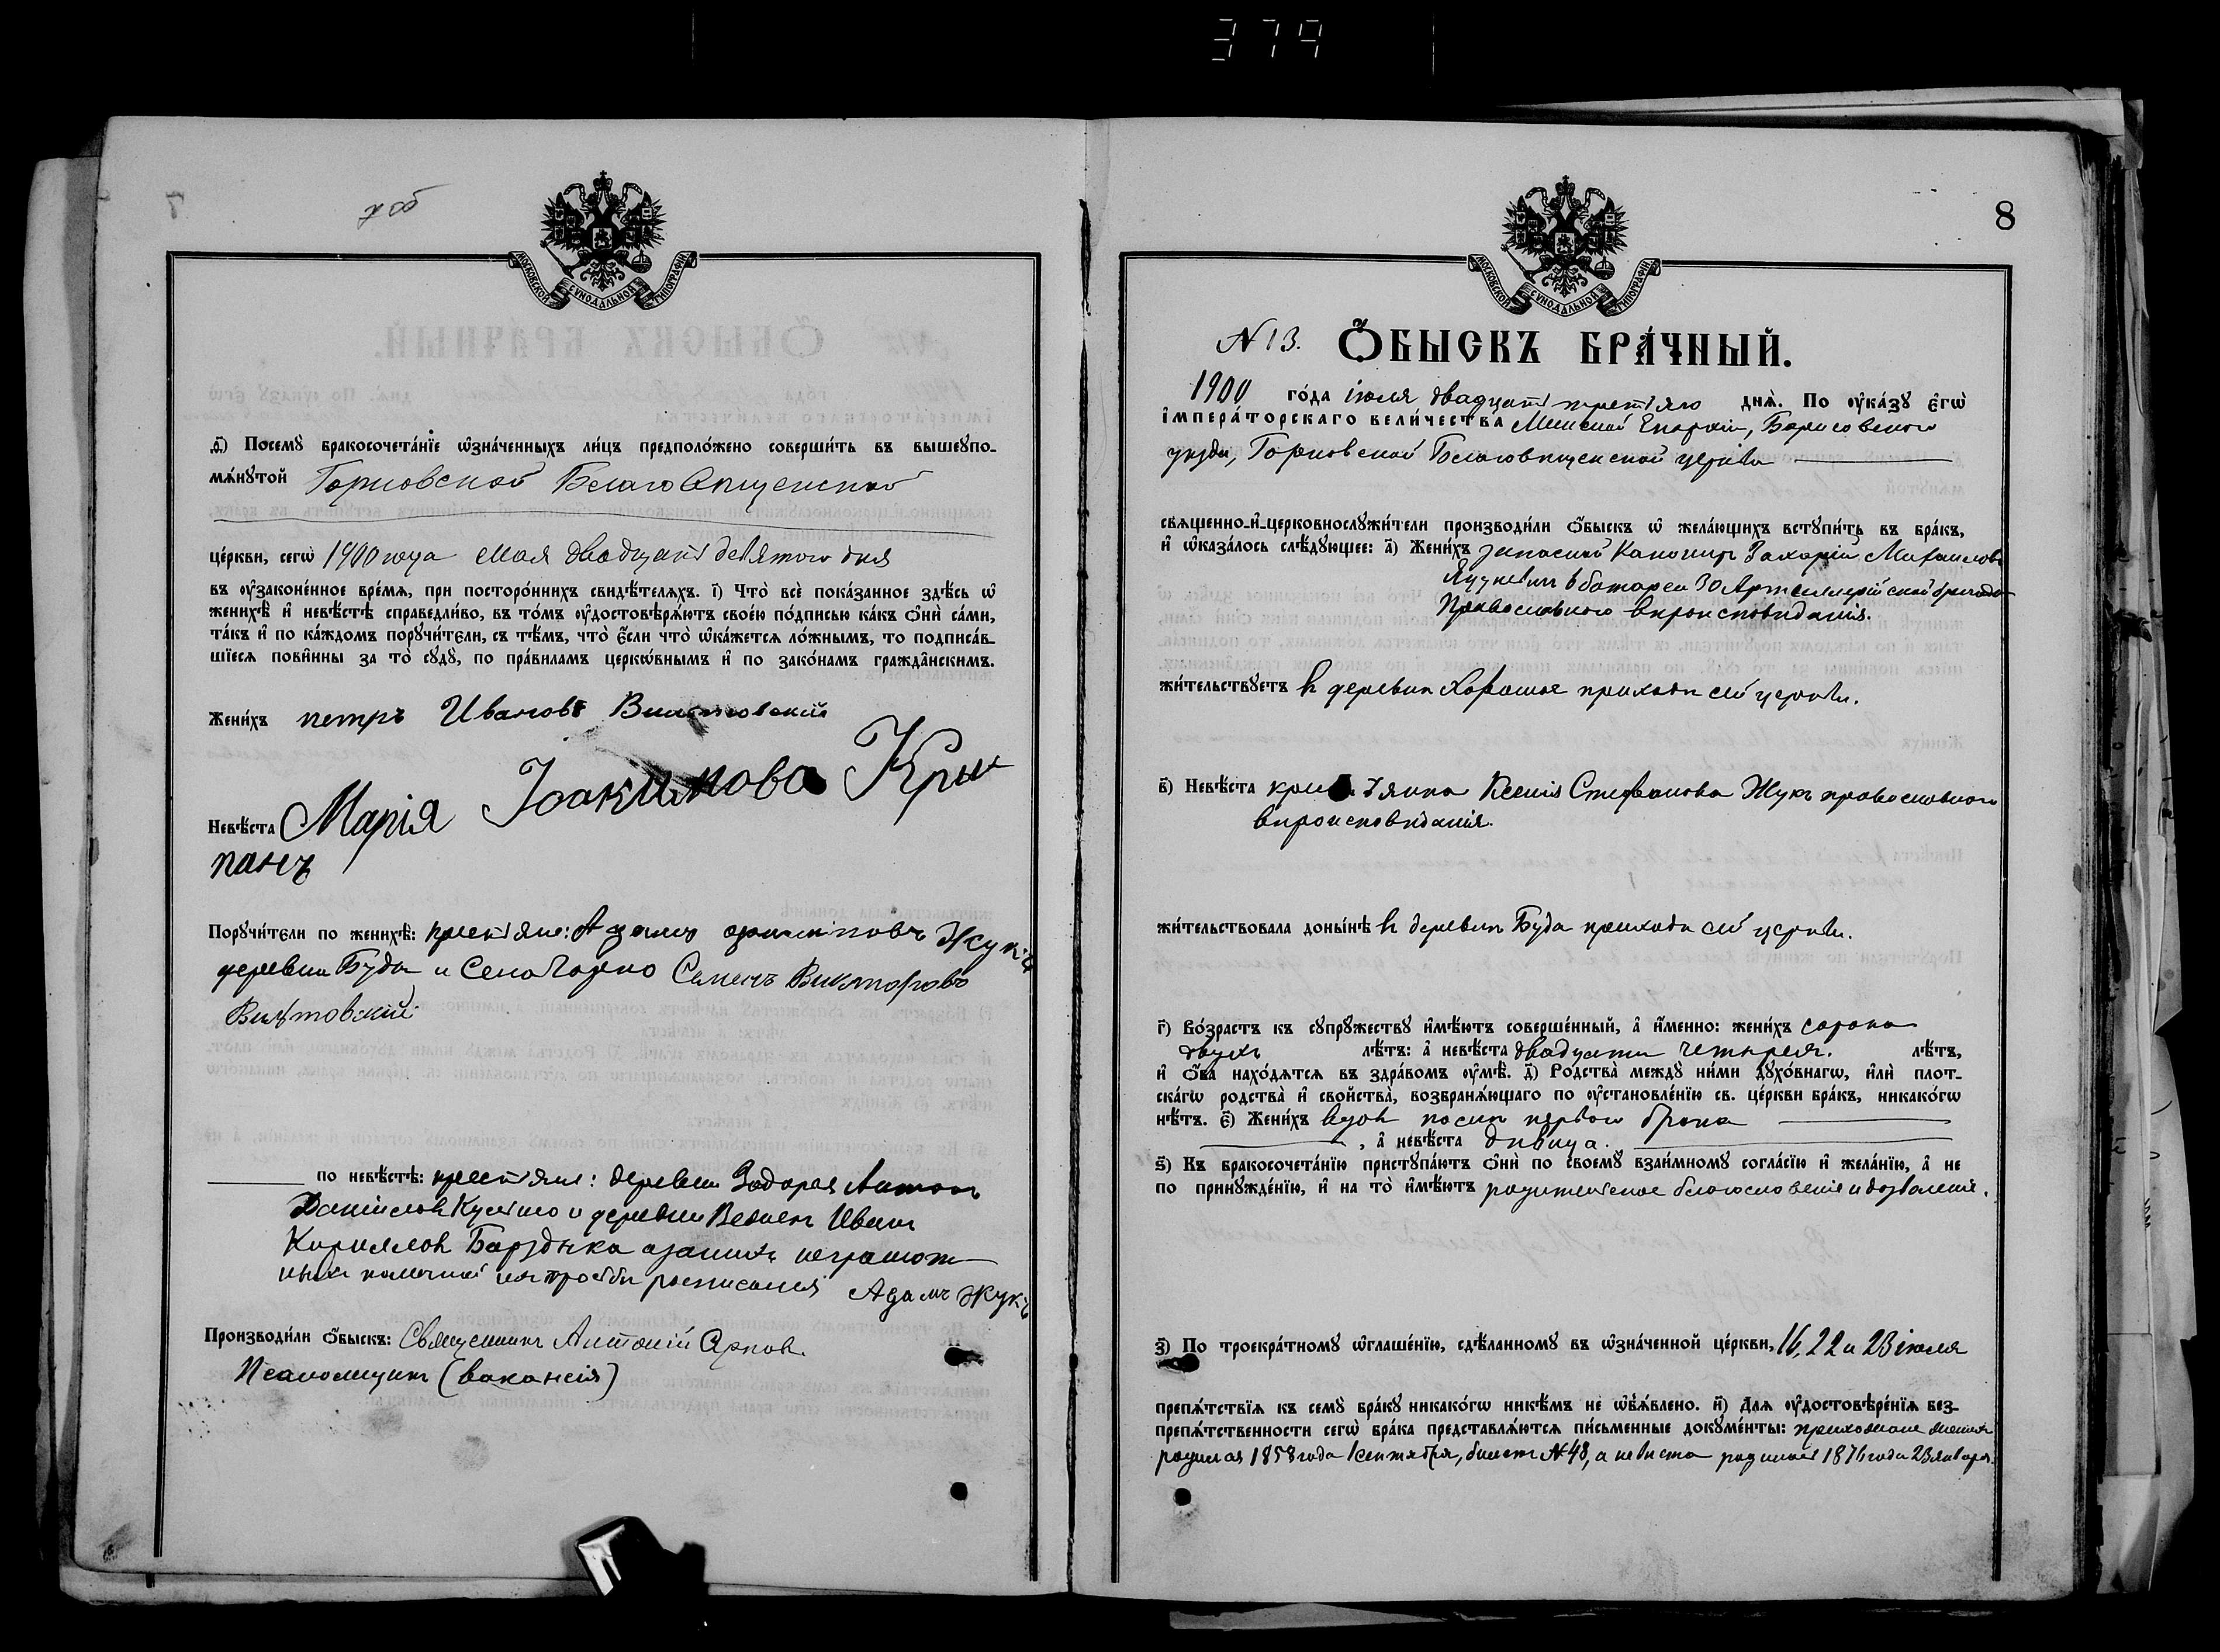 379
7 об
МОСКОВСКОЙ СѴНОДАЛЬНОЙ ТИПОГРАФІИ
д҃і) Посемꙋ бракосочета́нїе ѡ҆зна́ченныхъ ли́цъ предполо́жено соверши́ть въ вышеꙋпо-
мѧ́нꙋтой Горновской Благовѣщенской
це́ркви, сегѡ̀ 1900 года мая двадцать девятого дня
въ ᲂу҆законе́нное вре́мѧ, при посторо́ннихъ свидѣ́телѧхъ. і҃) Что̀ всѐ пока́занное здѣ́сь ѡ҆
женихѣ̀ и҆ невѣ́стѣ справедли́во, въ то́мъ ᲂу҆достовѣрѧ́ютъ свое́ю по́дписью ка́къ ѻ҆нѝ са́ми,
та́къ и҆ по ка́ждомъ порꙋчи́тели, съ тѣ́мъ, что̀ є҆́сли что̀ ѡ҆ка́жетсѧ ло́жнымъ, то подписа́в-
шїесѧ пови́нны за то̀ сꙋдꙋ̀, по пра́виламъ церкѡ́внымъ и҆ по зако́намъ гражда́нскимъ.
Жени́хъ петръ Ивановъ Вилтовский
Невѣ́ста Марія Іоакимова Кры
панъ
Порꙋчи́тели по женихѣ̀: крестяне: Адамъ Жукъ
деревни Буда и села Горно Семенъ Викторовъ
Вилтовский
по невѣ́стѣ: крестяне: деревни Антонъ
и деревни Иванъ
Кирилловъ неграмот
ныхъ росписался Адамъ Жукъ
Производи́ли ѻ҆́быскъ: Священникъ Антоній
Псаломщикъ (вакансія)
8
МОСКОВСКОЙ СѴНОДАЛЬНОЙ ТИПОГРАФІИ
N 13. Ѻ҆БЫСКЪ БРА́ЧНЫЙ.
1900 го́да іюля двадцать третьяго днѧ̀. По ᲂу҆ка́зꙋ є҆гѡ̀
і҆мпера́торскагѡ вели́чества Минской Епархіи, Борисовского
уѣзда, Горновской Благовѣщенской церкви
свѧще́нно-и҆-церковнослꙋжи́тели производи́ли ѻ҆́быскъ ѡ҆ жела́ющихъ встꙋпи́ть въ бра́къ,
и҆ ѡ҆каза́лось слѣ́дꙋющее: а҃) Жени́хъ запасный Канониръ Захарій Михаиловъ
Яцукевичъ 6 батареи 30 Артиллерійской бригады
Православного вѣроисповѣданія.
жи́тельствꙋетъ въ деревни Хорошое прихода сей церкви.
в҃) Невѣ́ста крестьянка Ксенія Стефанова Жукъ православного
вѣроисповѣданія.
жи́тельствовала доны́нѣ въ деревни Буда прихода сей церкви.
г҃) Во́зрастъ къ сꙋпрꙋ́жествꙋ и҆мѣ́ютъ соверше́нный, а҆ и҆́менно: жени́хъ сорока
двухъ лѣ́тъ: а҆ невѣ́ста двадцати четырехъ. лѣ́тъ,
и҆ ѻ҆́ба нахо́дѧтсѧ въ здра́вомъ ᲂу҆мѣ̀. д҃) Родства̀ междꙋ̀ ни́ми дꙋхо́внагѡ, и҆лѝ плот-
ска́гѡ родства̀ и҆ свойства̀, возбранѧ́ющаго по ᲂу҆становле́нїю св. це́ркви бра́къ, никако́гѡ
нѣ́тъ. є҃) Жени́хъ вдовъ послѣ первого брака
, а҆ невѣ́ста дѣвица.
ѕ҃) Къ бракосочета́нїю пристꙋпа́ютъ ѻ҆нѝ по своемꙋ̀ взаи́мномꙋ согла́сїю и҆ жела́нїю, а҆ не
по принꙋжде́нїю, и҆ на то̀ и҆мѣ́ютъ родительское благословеніе и дозволеніе.
з҃) По троекра́тномꙋ ѡ҆глаше́нїю, сдѣ́ланномꙋ въ ѡ҆зна́ченной це́ркви, 16, 22 и 23 іюля
препѧ́тствїѧ къ семꙋ̀ бра́кꙋ никако́гѡ никѣ́мъ не ѡ҆бъѧ́влено. и҃) Длѧ ᲂу҆достовѣре́нїѧ без-
препѧ́тственности сегѡ̀ бра́ка представлѧ́ютсѧ пи́сьменные докꙋме́нты: прихожане женихъ
родился 1858 года сентября, билетъ № 48, а невѣста родилась 1876 года 23 января.